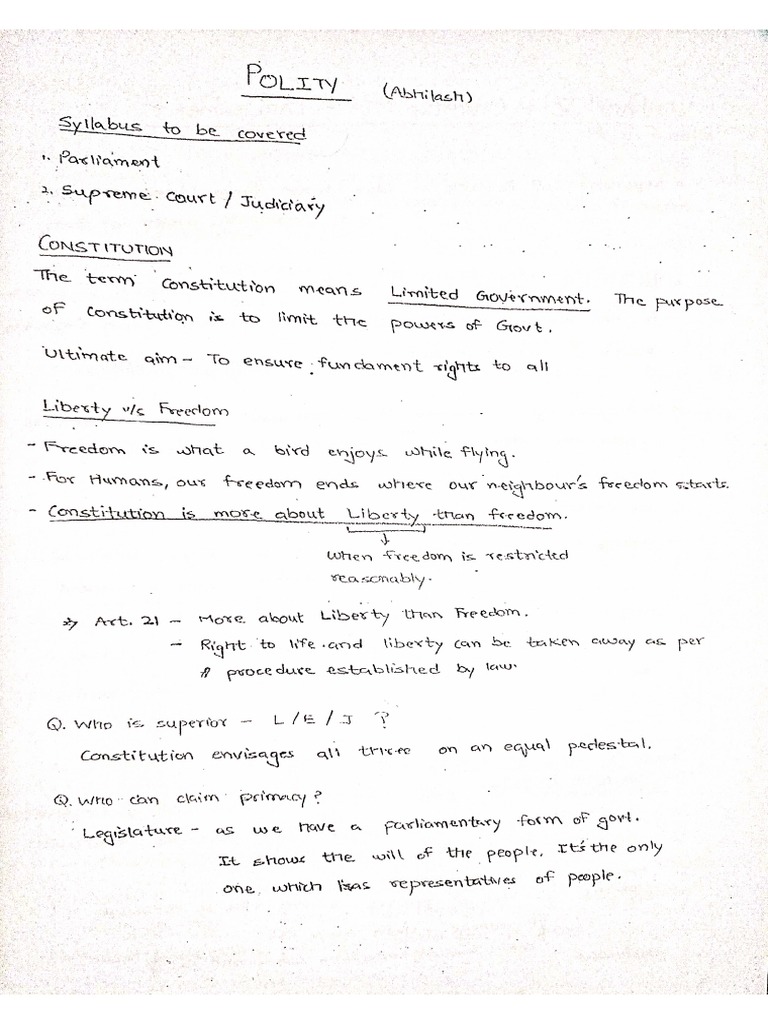 POLITY (Abhilash)
Syllabus to be covered
1. Parliament
2. Supreme Court / Judiciary
CONSTITUTION
The term constitution means Limited Government. The purpose
of constitution is to limit the powers of Govt.
Ultimate aim - To ensure fundament rights to all
Liberty v/s Freedom
- Freedom is what a bird enjoys while flying.
- For Humans, our freedom ends where our neighbour's freedom starts.
- Constitution is more about Liberty than freedom.
↓
when freedom is restricted
reasonably.
* Art. 21 - More about Liberty than Freedom.
- Right to life and liberty can be taken away as per
procedure established by law.
Q. Who is superior - L / E / J ?
Constitution envisages all three on an equal pedestal.
Q. Who can claim primacy?
Legislature - as we have a parliamentary form of govt.
It shows the will of the people. It's the only
one which has representatives of people.